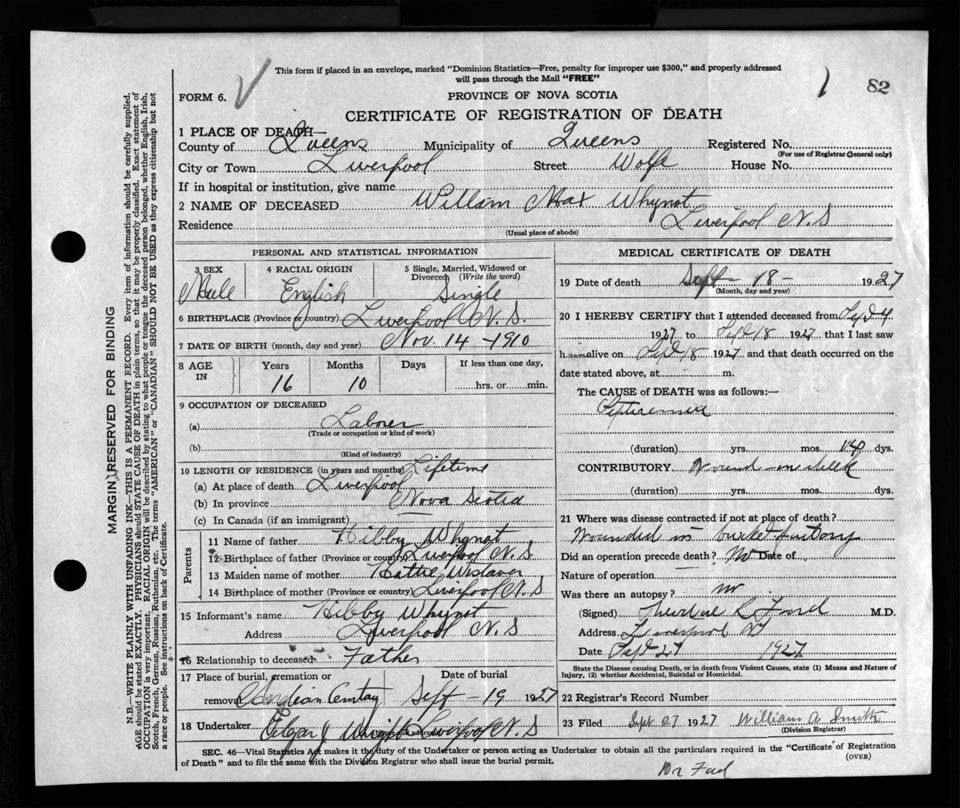 This form if placed in an envelope, marked "Dominion Statistics—Free, penalty for improper use $300," and properly addressed
will pass through the Mail "FREE"
1 82
FORM 6.
PROVINCE OF NOVA SCOTIA
CERTIFICATE OF REGISTRATION OF DEATH
1 PLACE OF DEATH—
County of Queens Municipality of Queens Registered No.
(For use of Registrar General only)
City or Town Liverpool Street Wolfe House No.
If in hospital or institution, give name
2 NAME OF DECEASED Willam Max Whynot
Residence Liverpool N.S
(Usual place of abode)
PERSONAL AND STATISTICAL INFORMATION
3 SEX 4 RACIAL ORIGIN 5 Single, Married, Widowed or
Divorced (Write the word)
Male English Single
6 BIRTHPLACE (Province or country) Liverpool N.S.
7 DATE OF BIRTH (month, day and year) Nov. 14 - 1910
8 AGE IN Years Months Days If less than one day,
16 10 hrs. or min.
9 OCCUPATION OF DECEASED
(a) Laborer
(Trade or occupation or kind of work)
(b)
(Kind of industry)
10 LENGTH OF RESIDENCE (in years and months) Lifetime
(a) At place of death Liverpool
(b) In province Nova Scotia
(c) In Canada (if an immigrant)
Parents
11 Name of father Hibby Whynot
12 Birthplace of father (Province or country) Liverpool N.S.
13 Maiden name of mother Hattie
14 Birthplace of mother (Province or country) Liverpool N.S
15 Informant's name Hibby Whynot
Address Liverpool N.S
16 Relationship to deceased Father
17 Place of burial, cremation or Date of burial
removal Sept - 19 1927
18 Undertaker Edgar J Wright Liverpool N.S
MEDICAL CERTIFICATE OF DEATH
19 Date of death Sept - 18 - 1927
(Month, day and year)
20 I HEREBY CERTIFY that I attended deceased from Sept 4
1927 to Sept 18 1927 that I last saw
him alive on Sept 18 1927 and that death occurred on the
date stated above, at m.
The CAUSE of DEATH was as follows:—
Septicemia
(duration) yrs. mos. 14 dys.
CONTRIBUTORY Wound
(duration) yrs. mos. dys.
21 Where was disease contracted if not at place of death?
Wounded in bucket factory
Did an operation precede death? No Date of
Nature of operation
Was there an autopsy? no
(Signed) Ford M.D.
Address Liverpool NS
Date Sept 27 1927
State the Disease causing Death, or in death from Violent Causes, state (1) Means and Nature of
Injury, (2) whether Accidental, Suicidal or Homicidal.
22 Registrar's Record Number
23 Filed Sept 27 1927 William A Smith
(Division Registrar)
SEC. 46—Vital Statistics Act makes it the duty of the Undertaker or person acting as Undertaker to obtain all the particulars required in the "Certificate of Registration
of Death" and to file the same with the Division Registrar who shall issue the burial permit.
(OVER)
MARGIN RESERVED FOR BINDING
N.B.—WRITE PLAINLY WITH UNFADING INK—THIS IS A PERMANENT RECORD. Every item of information should be carefully supplied.
AGE should be stated EXACTLY. PHYSICIANS should STATE CAUSE OF DEATH in plain terms, so that it may be properly classified. Exact statement of
OCCUPATION is very important. RACIAL ORIGIN will be described by stating to what people or tongue the deceased person belonged, whether English, Irish,
Scotch, French, German, Russian, Ruthenian, etc. The terms "AMERICAN" or "CANADIAN" SHOULD NOT BE USED as they express citizenship but not
a race or people. See instructions on back of Certificate.